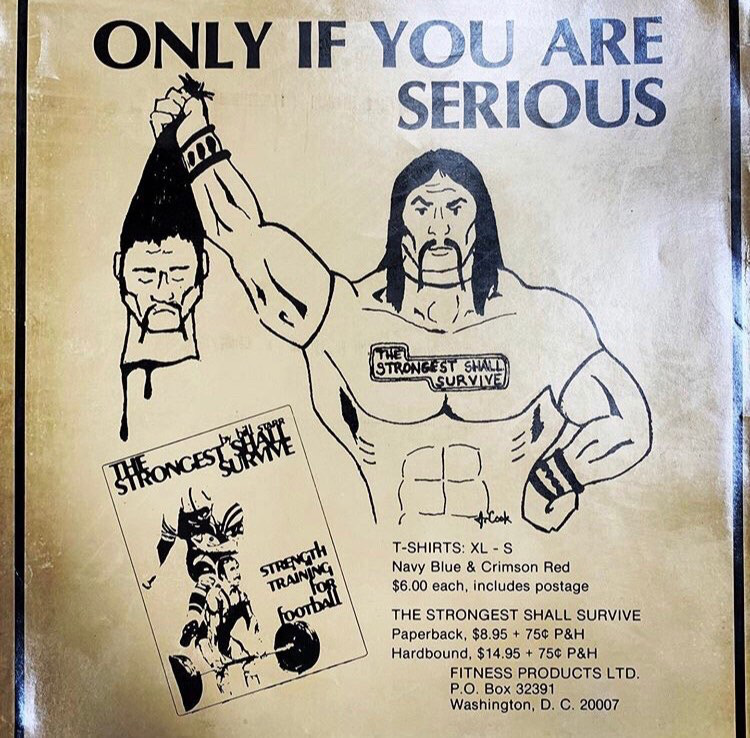 ONLY IF YOU ARE
SERIOUS
THE
STRONGEST SHALL
SURVIVE
by bill starr
THE
STRONGEST SHALL
SURVIVE
STRENGTH
TRAINING
for
football
A. Cook
T-SHIRTS: XL - S
Navy Blue & Crimson Red
$6.00 each, includes postage
THE STRONGEST SHALL SURVIVE
Paperback, $8.95 + 75¢ P&H
Hardbound, $14.95 + 75¢ P&H
FITNESS PRODUCTS LTD.
P.O. Box 32391
Washington, D. C. 20007